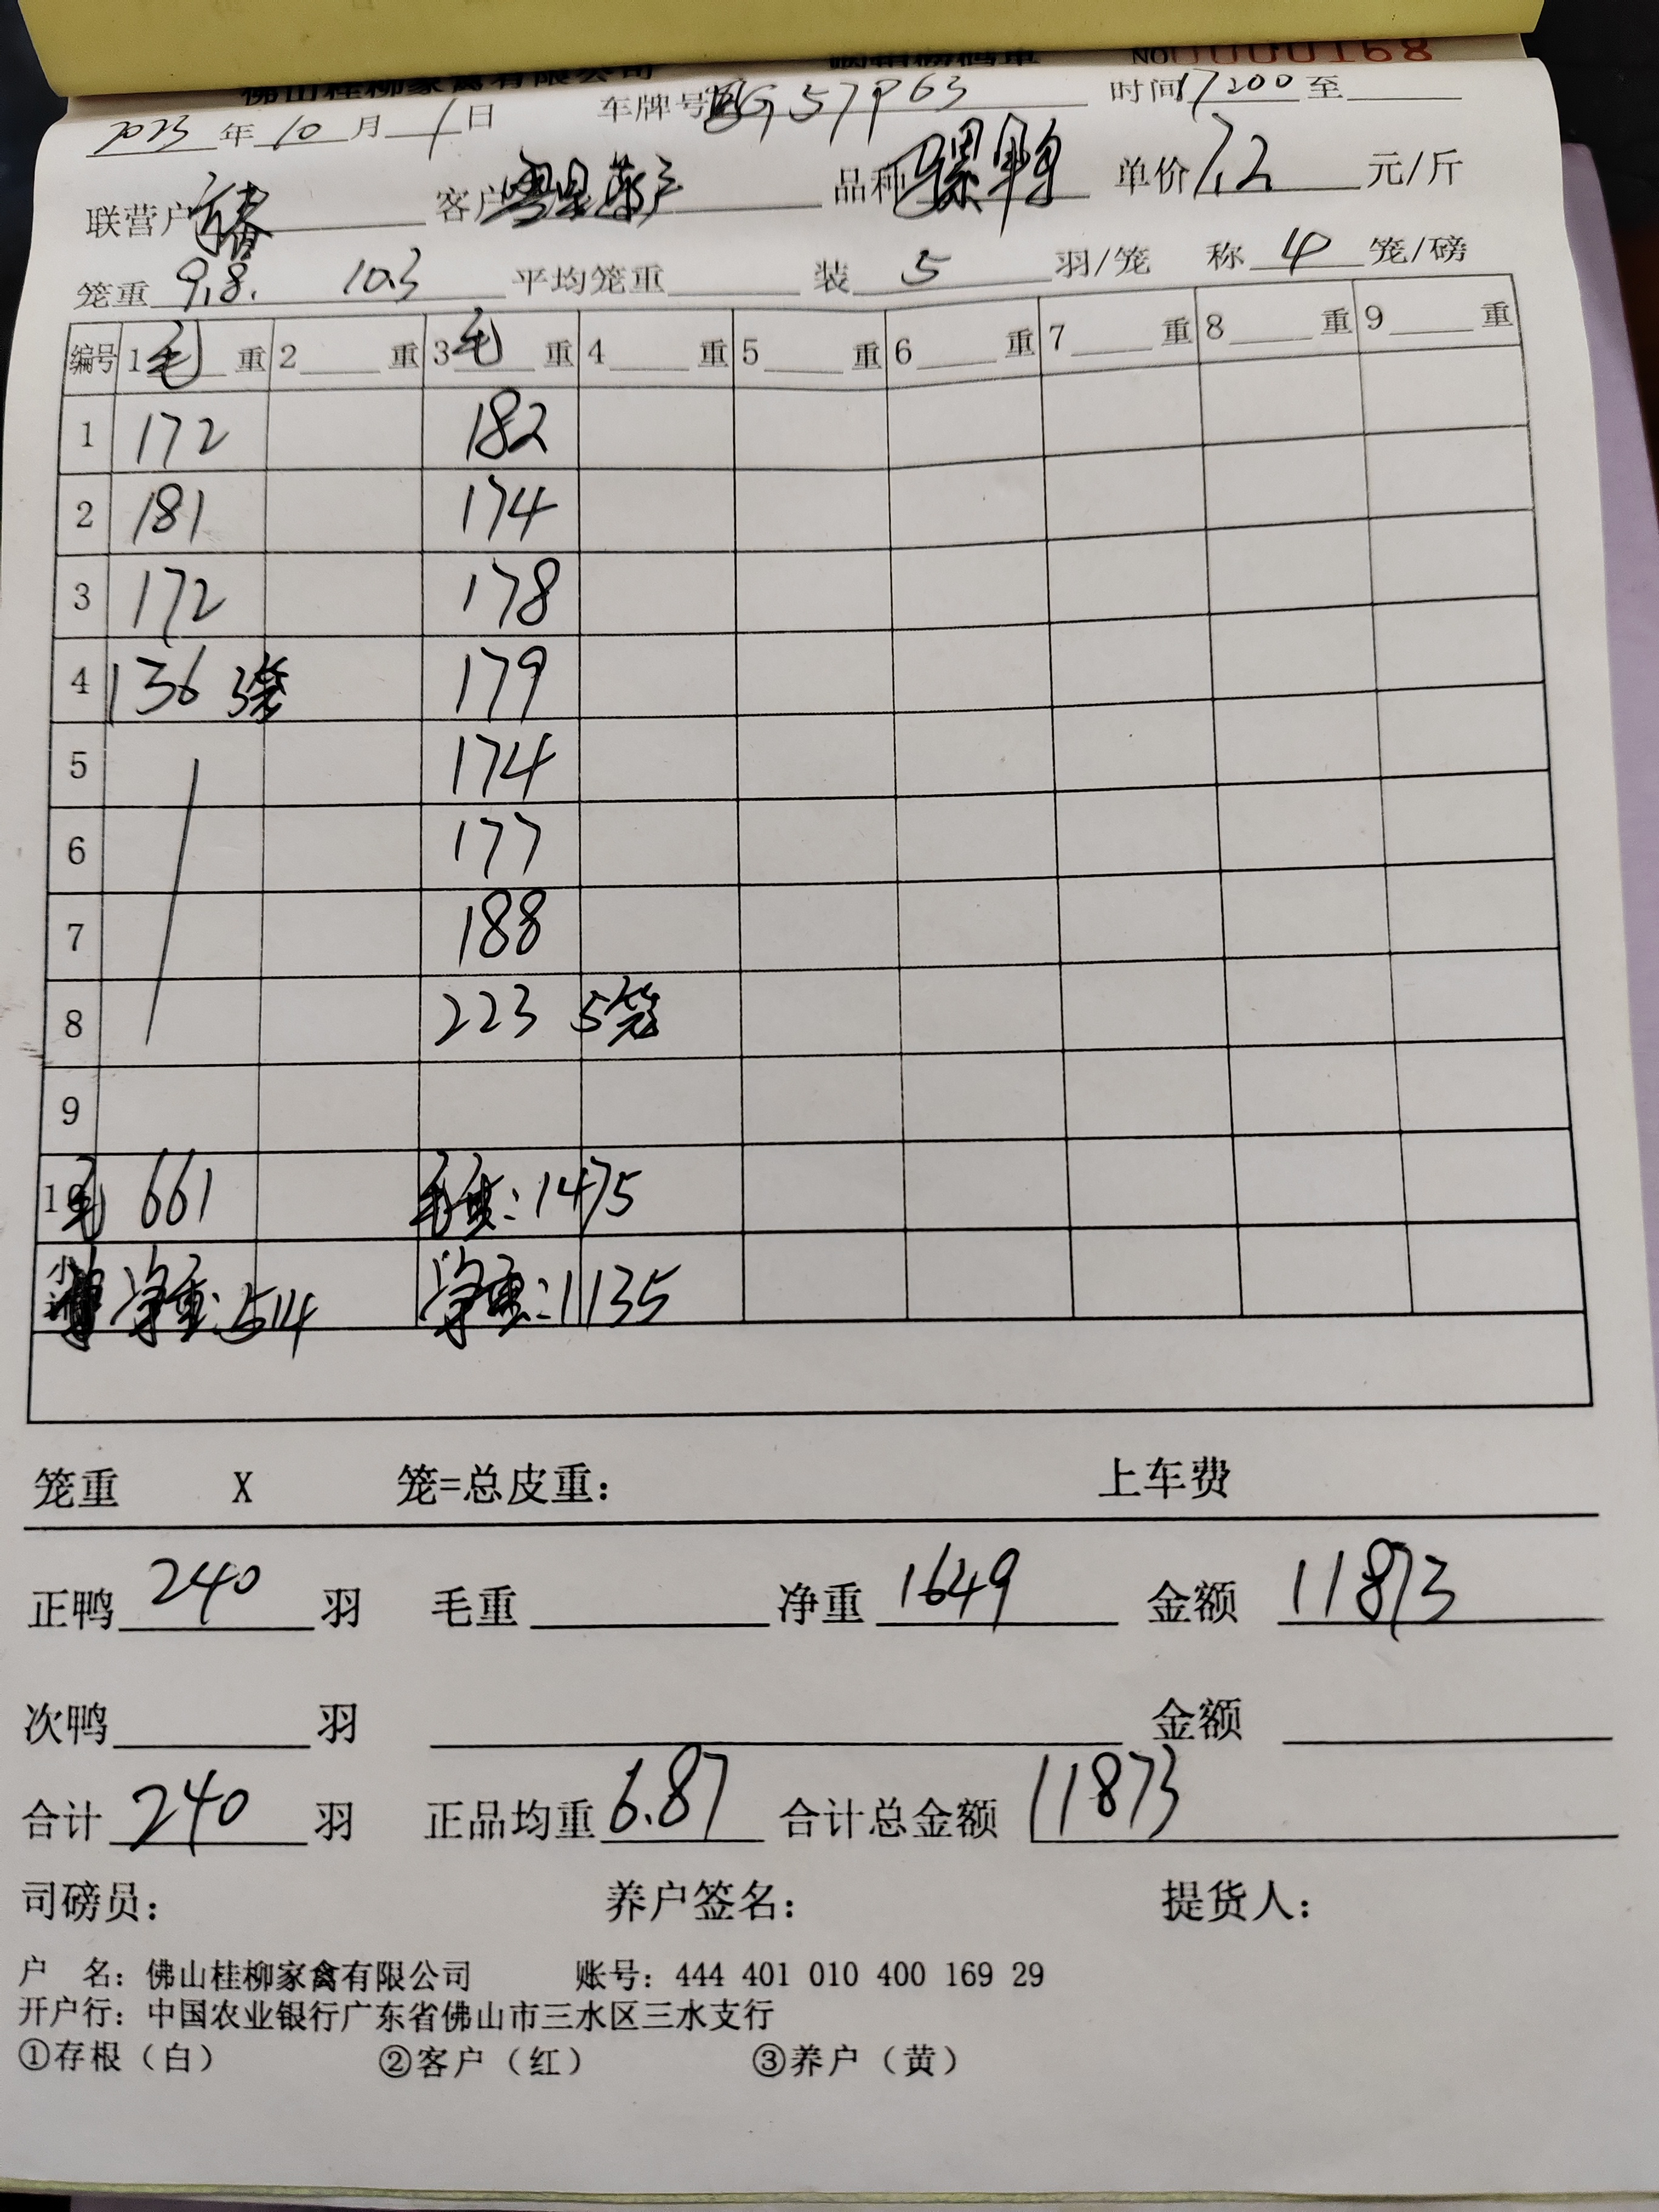 佛山桂柳家禽有限公司 NO 0000168
2023年10月1日 车牌号 G57P63 时间17200至
联营户 客户 品种骡鸭 单价7.2元/斤
笼重9.8. 10.3 平均笼重 装5羽/笼 称4笼/磅
编号 1毛重 2重 3毛重 4重 5重 6重 7重 8重 9重
1 172 182
2 181 174
3 172 178
4 136 3笼 179
5 174
6 177
7 188
8 223 5笼
9
10毛 661 毛重:1475
小计 净重:514 净重:1135
笼重 X 笼=总皮重: 上车费
正鸭240羽 毛重 净重1649 金额11873
次鸭 羽 金额
合计240羽 正品均重6.87 合计总金额11873
司磅员: 养户签名: 提货人:
户 名: 佛山桂柳家禽有限公司 账号: 444 401 010 400 169 29
开户行: 中国农业银行广东省佛山市三水区三水支行
①存根（白） ②客户（红） ③养户（黄）